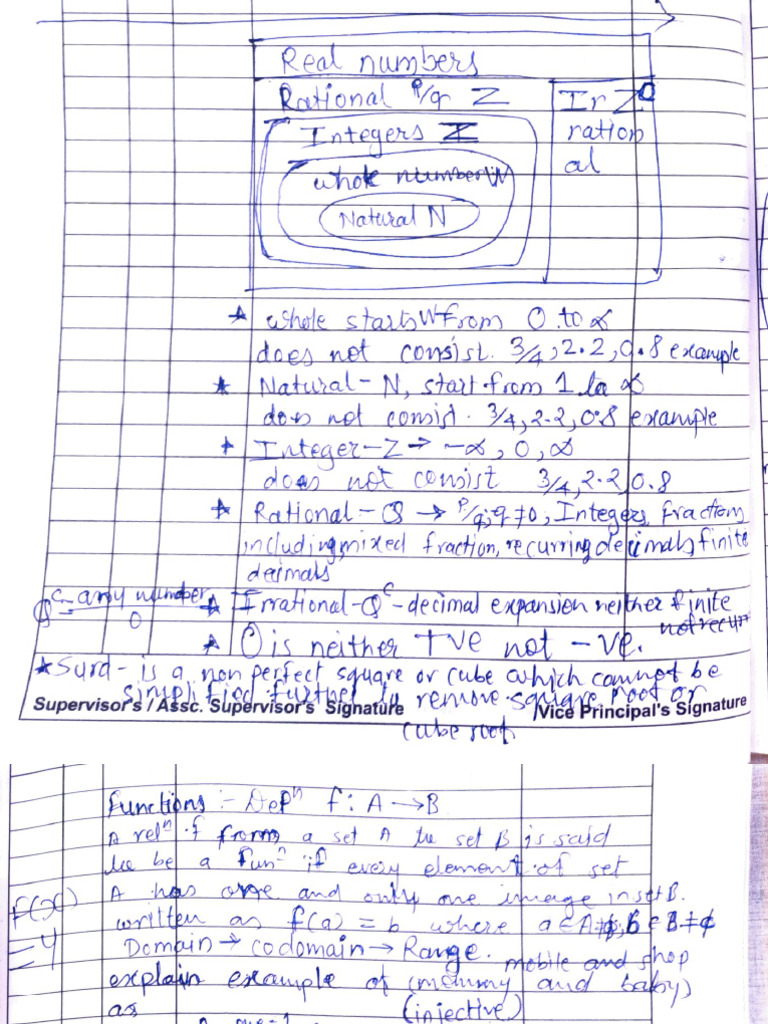 Real numbers
Rational P/q Z
Ir Z
ration
al
Integers Z
whole number W
Natural N
★ whole starts W from 0 to ∝
does not consist. 3/4, 2.2, 0.8 example
★ Natural - N, start from 1 to ∝
does not consist. 3/4, 2.2, 0.8 example
★ Integer - Z → -∝, 0, ∝
does not consist 3/4, 2.2, 0.8
★ Rational - Q → P/q, q ≠ 0, Integers, fractions
including mixed fraction, recurring decimals, finite
decimals
Qᶜ = any number
0
★ Irrational - Qᶜ - decimal expansion neither finite
not recur
★ 0 is neither +ve not -ve.
★ Surd - is a non perfect square or cube which cannot be
simplified further to remove square root or
cube roof
Supervisor's / Assc. Supervisor's Signature
Vice Principal's Signature
Functions :- Defⁿ f : A → B
A relⁿ f from a set A to set B is said
to be a funⁿ if every element of set
A has one and only one image in set B.
f(x)
= y
written as f(a) = b where a ∈ A ≠ ϕ, b ∈ B ≠ ϕ
Domain → codomain → Range.
mobile and shop
explain example of (mummy and baby)
as (injective)